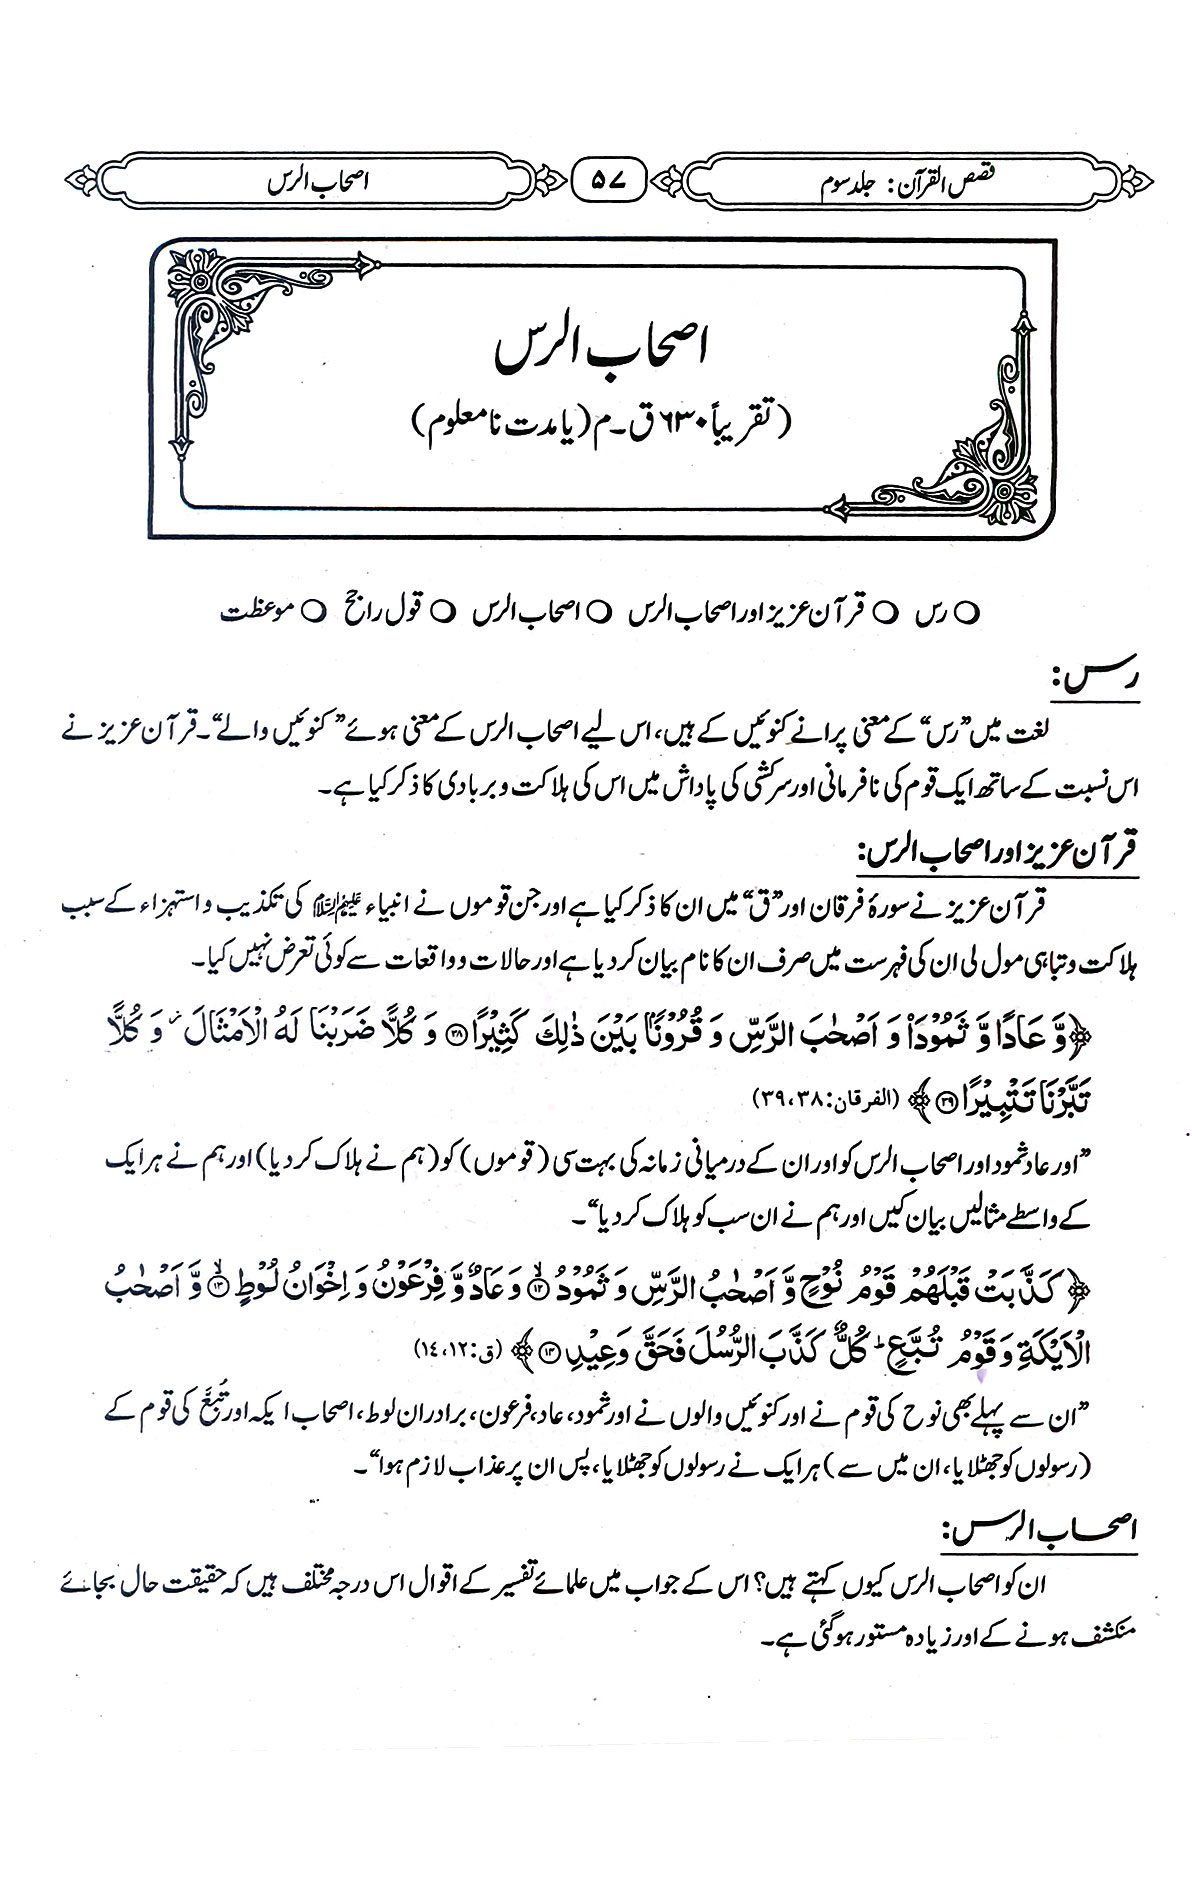 قصص القرآن: جلد سوم
۵۷
اصحاب الرس
اصحاب الرس
(تقریباً ۶۳۰ ق۔م (یا مدت نامعلوم)
○ رس ○ قرآن عزیز اور اصحاب الرس ○ اصحاب الرس ○ قول راجح ○ موعظت
رس:
لغت میں ”رس“ کے معنی پرانے کنوئیں کے ہیں، اس لیے اصحاب الرس کے معنی ہوئے ”کنوئیں والے“۔ قرآن عزیز نے
اس نسبت کے ساتھ ایک قوم کی نافرمانی اور سرکشی کی پاداش میں اس کی ہلاکت و بربادی کا ذکر کیا ہے۔
قرآن عزیز اور اصحاب الرس:
قرآن عزیز نے سورۂ فرقان اور ”ق“ میں ان کا ذکر کیا ہے اور جن قوموں نے انبیاء علیہم السلام کی تکذیب و استہزاء کے سبب
ہلاکت و تباہی مول لی ان کی فہرست میں صرف ان کا نام بیان کر دیا ہے اور حالات و واقعات سے کوئی تعرض نہیں کیا۔
﴿وَّ عَادًا وَّ ثَمُوْدَا۠ وَ اَصْحٰبَ الرَّسِّ وَ قُرُوْنًۢا بَيْنَ ذٰلِكَ كَثِيْرًا۝۳۸ وَ كُلًّا ضَرَبْنَا لَهُ الْاَمْثَالَ ؗ وَ كُلًّا
تَبَّرْنَا تَتْبِيْرًا۝۳۹﴾ (الفرقان: ۳۸، ۳۹)
”اور عاد ثمود اور اصحاب الرس کو اور ان کے درمیانی زمانہ کی بہت سی (قوموں) کو (ہم نے ہلاک کر دیا) اور ہم نے ہر ایک
کے واسطے مثالیں بیان کیں اور ہم نے ان سب کو ہلاک کر دیا“۔
﴿كَذَّبَتْ قَبْلَهُمْ قَوْمُ نُوْحٍ وَّ اَصْحٰبُ الرَّسِّ وَ ثَمُوْدُۙ۝۱۲ وَ عَادٌ وَّ فِرْعَوْنُ وَ اِخْوَانُ لُوْطٍۙ۝۱۳ وَّ اَصْحٰبُ
الْاَيْكَةِ وَ قَوْمُ تُبَّعٍ ؕ كُلٌّ كَذَّبَ الرُّسُلَ فَحَقَّ وَعِيْدِ۝۱۴﴾ (ق: ۱۲، ۱٤)
”ان سے پہلے بھی نوح کی قوم نے اور کنوئیں والوں نے اور ثمود، عاد، فرعون، برادران لوط، اصحاب ایکہ اور تُبَّع کی قوم کے
(رسولوں کو جھٹلایا، ان میں سے) ہر ایک نے رسولوں کو جھٹلایا، پس ان پر عذاب لازم ہوا“۔
اصحاب الرس:
ان کو اصحاب الرس کیوں کہتے ہیں؟ اس کے جواب میں علمائے تفسیر کے اقوال اس درجہ مختلف ہیں کہ حقیقت حال بجائے
منکشف ہونے کے اور زیادہ مستور ہو گئی ہے۔